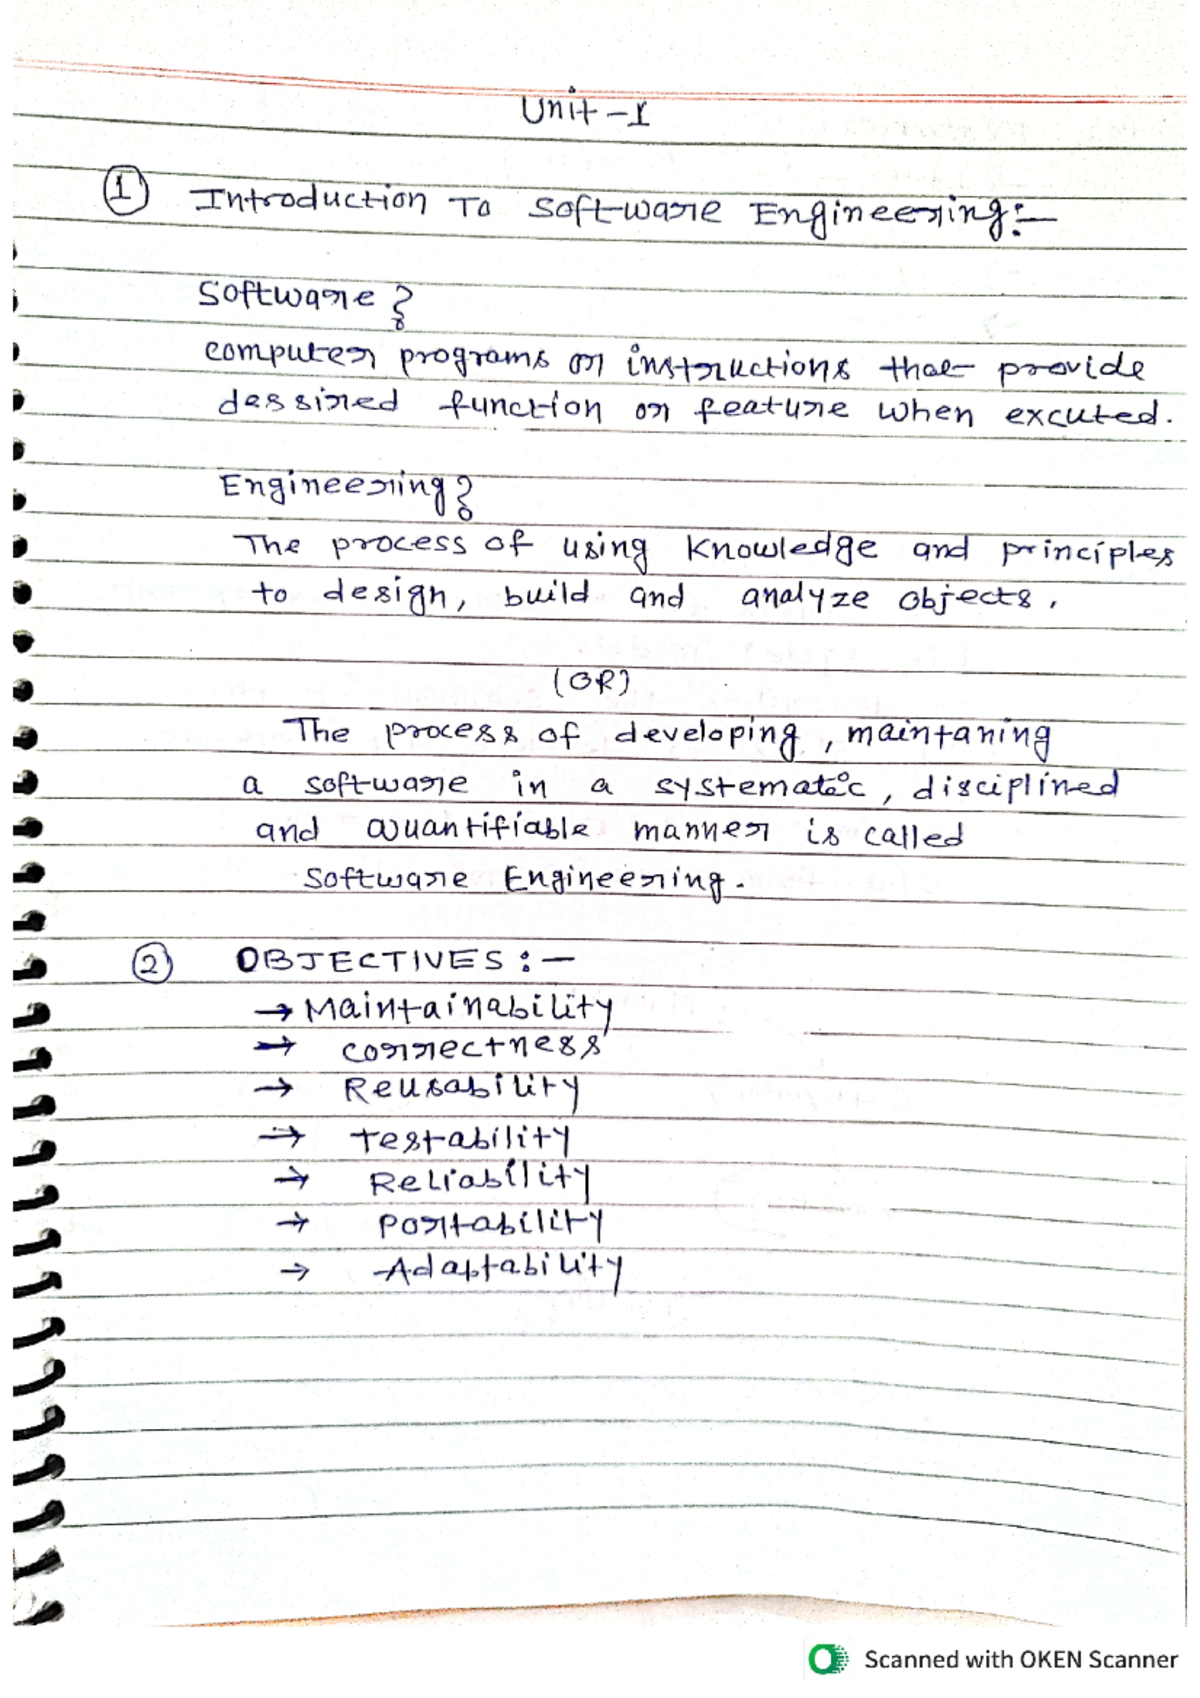 Unit-1
① Introduction To Software Engineering:-
Software?
computer programs or instructions that provide
dessired function or feature when excuted.
Engineering?
The process of using Knowledge and principles
to design, build and analyze objects.
(OR)
The process of developing, maintaning
a software in a systematic, disciplined
and quantifiable manner is called
Software Engineering.
② OBJECTIVES:-
→ Maintainability
→ correctness
→ Reusability
→ Testability
→ Reliability
→ Portability
→ Adaptability
Scanned with OKEN Scanner